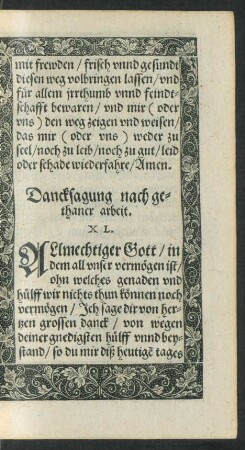 mit frewden / frisch vnnd gesundt
diesen weg volbringen lassen / vnd
für allem jrrthumb vnnd feindt-
schafft bewaren / vnd mir ( oder
vns ) den weg zeigen vnd weisen /
das mir ( oder vns ) weder zu
seel / noch zu leib / noch zu gut / leid
oder schade wiederfahre / Amen.
Dancksagung nach ge-
thaner arbeit.
XL.
ALlmechtiger Gott / in
dem all vnser vermögen ist /
ohn welches genaden vnd
hülff wir nichts thun können noch
vermögen / Ich sage dir von her-
tzen grossen danck / von wegen
deiner gnedigsten hülff vnnd bey-
stand / so du mir diß heutigē tages